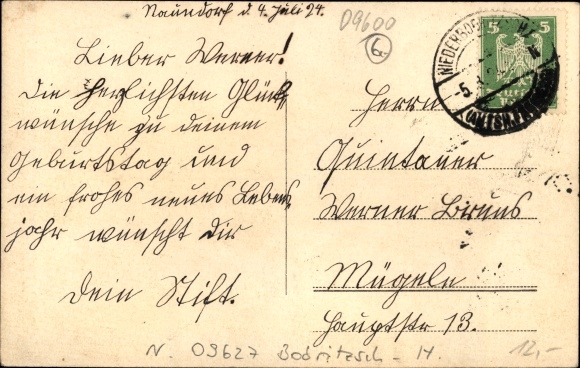 Naundorf d. 4. Juli 24.
D9600
6
Lieber Werner!
Die herzlichsten Glück-
wünsche zu deinem
Geburtstag und
ein frohes neues Lebens-
jahr wünscht dir
Dein Stift.
5 5
NIEDERBOB
Herrn
Quintaner
Werner Bruns
Mügeln
Hauptstr 13.
N. 09627 Bobritzsch - H.
12,-